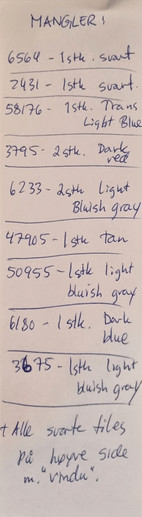 MANGLER!
6564 - 1stk. svart
2431 - 1stk svart.
58176 - 1stk. Trans
Light Blue
3795 - 2stk. Dark
red
6233 - 2stk light
Bluish gray
47905 - 1stk tan
50955 - 1stk light
bluish gray
6180 - 1stk. Dark
blue
3675 - 1stk light
bluish gray
+ Alle svarte tiles
på høyre side
m. "vindu".